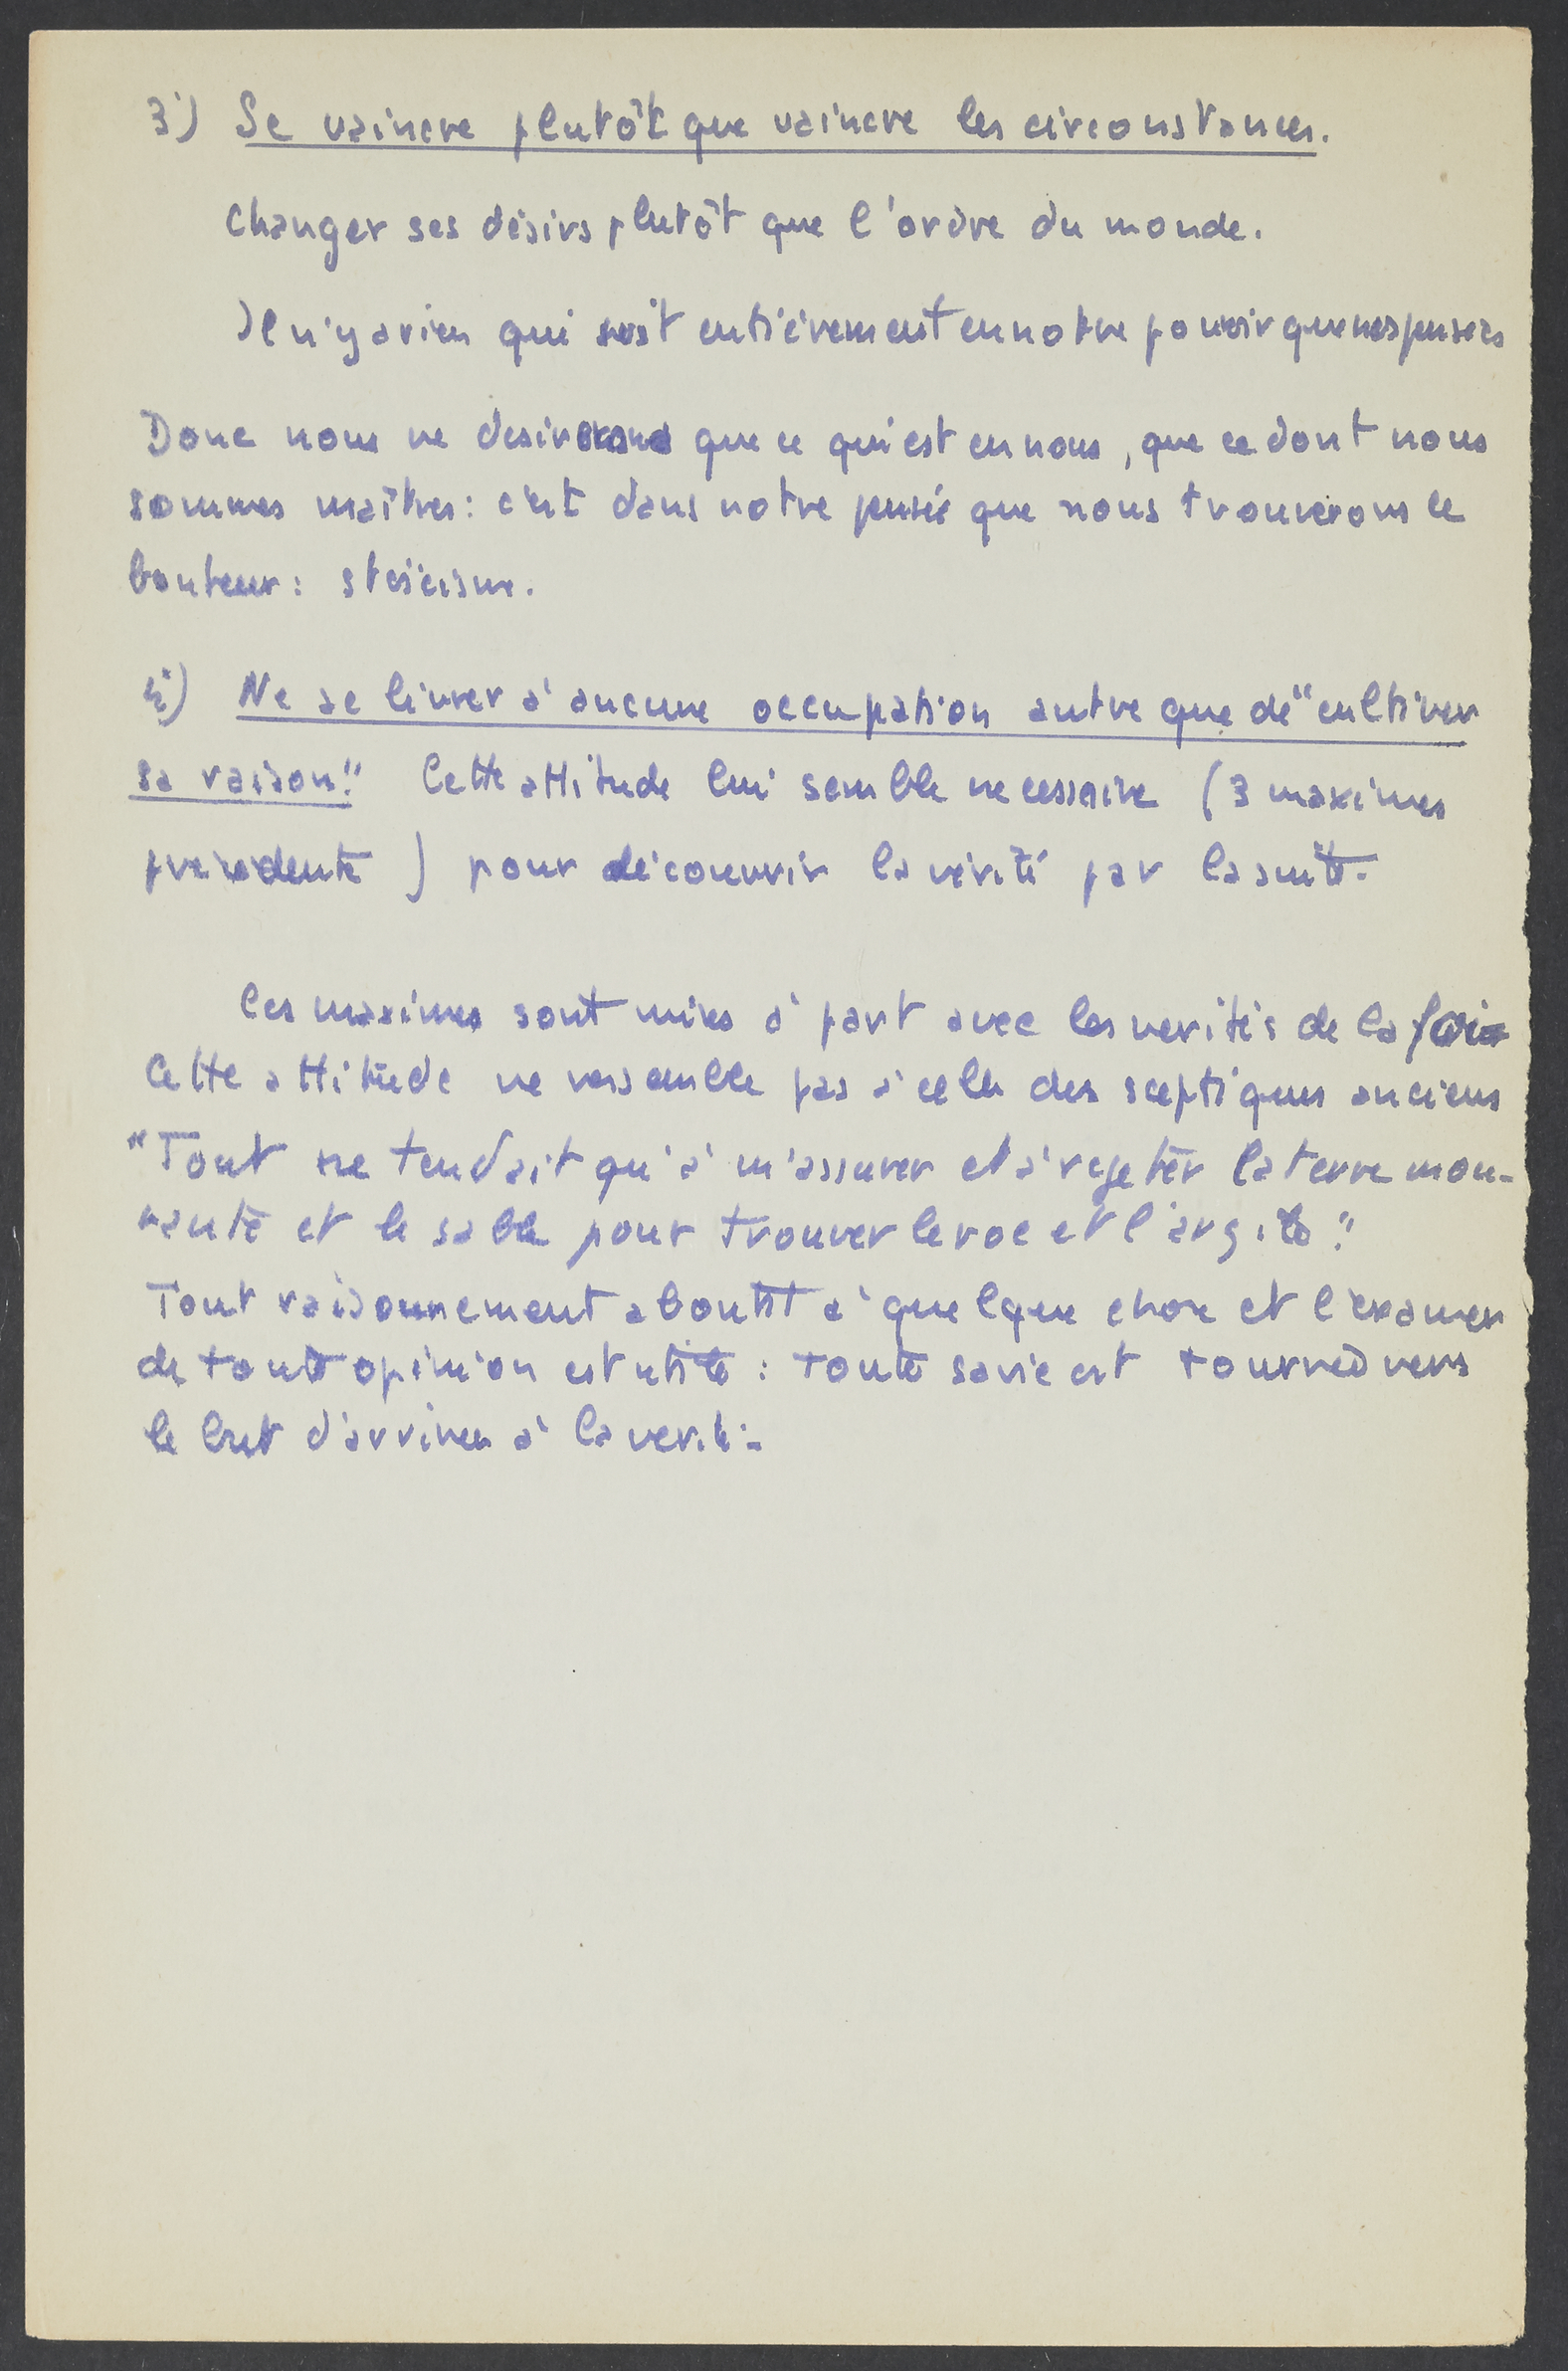 3°) Se vaincre plutôt que vaincre les circonstances.
Changer ses désirs plutôt que l'ordre du monde.
Il n'y a rien qui soit entièrement en notre pouvoir que nos pensées
Donc nous ne desirerons que ce qui est en nous, que ce dont nous
sommes maîtres : c'est dans notre pensée que nous trouverons le
bonheur : stoïcisme.
4°) Ne se livrer à aucune occupation autre que de "cultiver
sa raison". Cette attitude lui semble necessaire (3 maximes
precedente ) pour découvrir la vérité par la suite.
Ces maximes sont mises à part avec les verités de la foi.
Cette attitude ne ressemble pas à celle des sceptiques anciens
"Tout ne tendait qu'à m'assurer et à rejeter la terre mou-
vante et le sable pour trouver le roc et l'argile".
Tout raisonnement aboutit à quelque chose et l'examen
de toute opinion est utile : toute sa vie est tournée vers
le but d'arriver à la verité.